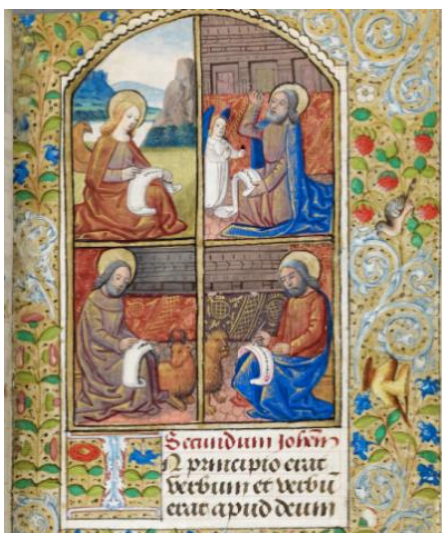 Secundum Johēn
IN principio erat
verbum et verbū
erat apud deum